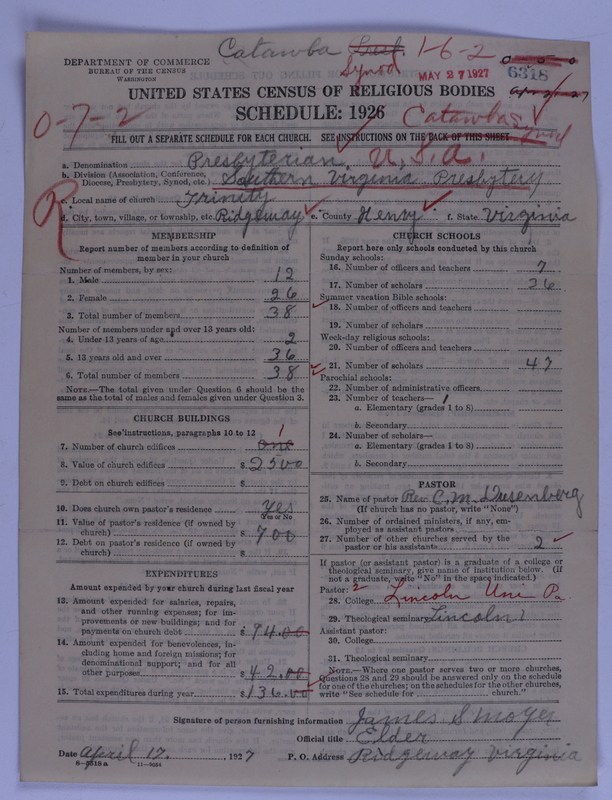 Catawba Synod 1-6-2
DEPARTMENT OF COMMERCE
BUREAU OF THE CENSUS
WASHINGTON
MAY 27 1927
6318
UNITED STATES CENSUS OF RELIGIOUS BODIES
SCHEDULE: 1926
0-7-2
Catawba Synod
FILL OUT A SEPARATE SCHEDULE FOR EACH CHURCH. SEE INSTRUCTIONS ON THE BACK OF THIS SHEET
a. Denomination Presbyterian U.S.A.
b. Division (Association, Conference, Diocese, Presbytery, Synod, etc.) Southern Virginia Presbytery
c. Local name of church Trinity
R
d. City, town, village, or township, etc. Ridgeway e. County Henry f. State Virginia
MEMBERSHIP
Report number of members according to definition of
member in your church
Number of members, by sex:
1. Male 12
2. Female 26
3. Total number of members 38
Number of members under and over 13 years old:
4. Under 13 years of age 2
5. 13 years old and over 36
6. Total number of members 38
NOTE.—The total given under Question 6 should be the
same as the total of males and females given under Question 3.
CHURCH BUILDINGS
See instructions, paragraphs 10 to 12
7. Number of church edifices one 1
8. Value of church edifices $2500
9. Debt on church edifices $
10. Does church own pastor's residence yes
Yes or No
11. Value of pastor's residence (if owned by
church) $700
12. Debt on pastor's residence (if owned by
church) $
EXPENDITURES
Amount expended by your church during last fiscal year
13. Amount expended for salaries, repairs,
and other running expense; for im-
provements or new buildings; and for
payments on church debt $94.00
14. Amount expended for benevolences, in-
cluding home and foreign missions; for
denominational support; and for all
other purposes $42.00
15. Total expenditures during year $136.00
CHURCH SCHOOLS
Report here only schools conducted by this church
Sunday schools:
16. Number of officers and teachers 7
17. Number of scholars 26
Summer vacation Bible schools:
18. Number of officers and teachers
19. Number of scholars
Week-day religious schools:
20. Number of officers and teachers
21. Number of scholars 47
Parochial schools:
22. Number of administrative officers
23. Number of teachers— 1
a. Elementary (grades 1 to 8)
b. Secondary
24. Number of scholars—
a. Elementary (grades 1 to 8)
b. Secondary
PASTOR
25. Name of pastor Rev. C. M. Dusenberg
(If church has no pastor, write "None")
26. Number of ordained ministers, if any, em-
ployed as assistant pastors
27. Number of other churches served by the
pastor or his assistants 2
If pastor (or assistant pastor) is a graduate of a college or
theological seminary, give name of institution below. (If
not a graduate, write "No" in the space indicated.)
Pastor: 2
28. College Lincoln Uni Pa
29. Theological seminary Lincoln
Assistant pastor:
30. College
31. Theological seminary
NOTE.—Where one pastor serves two or more churches,
Questions 28 and 29 should be answered only on the schedule
for one of the churches; on the schedules for the other churches,
write "See schedule for church."
Signature of person furnishing information James S Moyer
Official title Elder
Date April 12, 1927 P. O. Address Ridgeway Virginia
8-3518a 11-9034